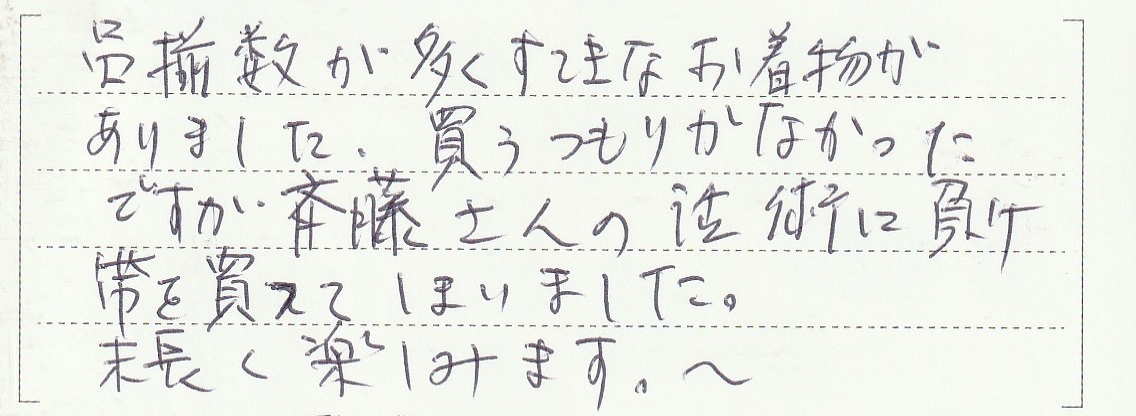 品揃数が多くすてきなお着物が
ありました。買うつもりがなかった
ですが斉藤さんの話術に負け
帯を買えてしまいました。
末長く楽しみます。〜